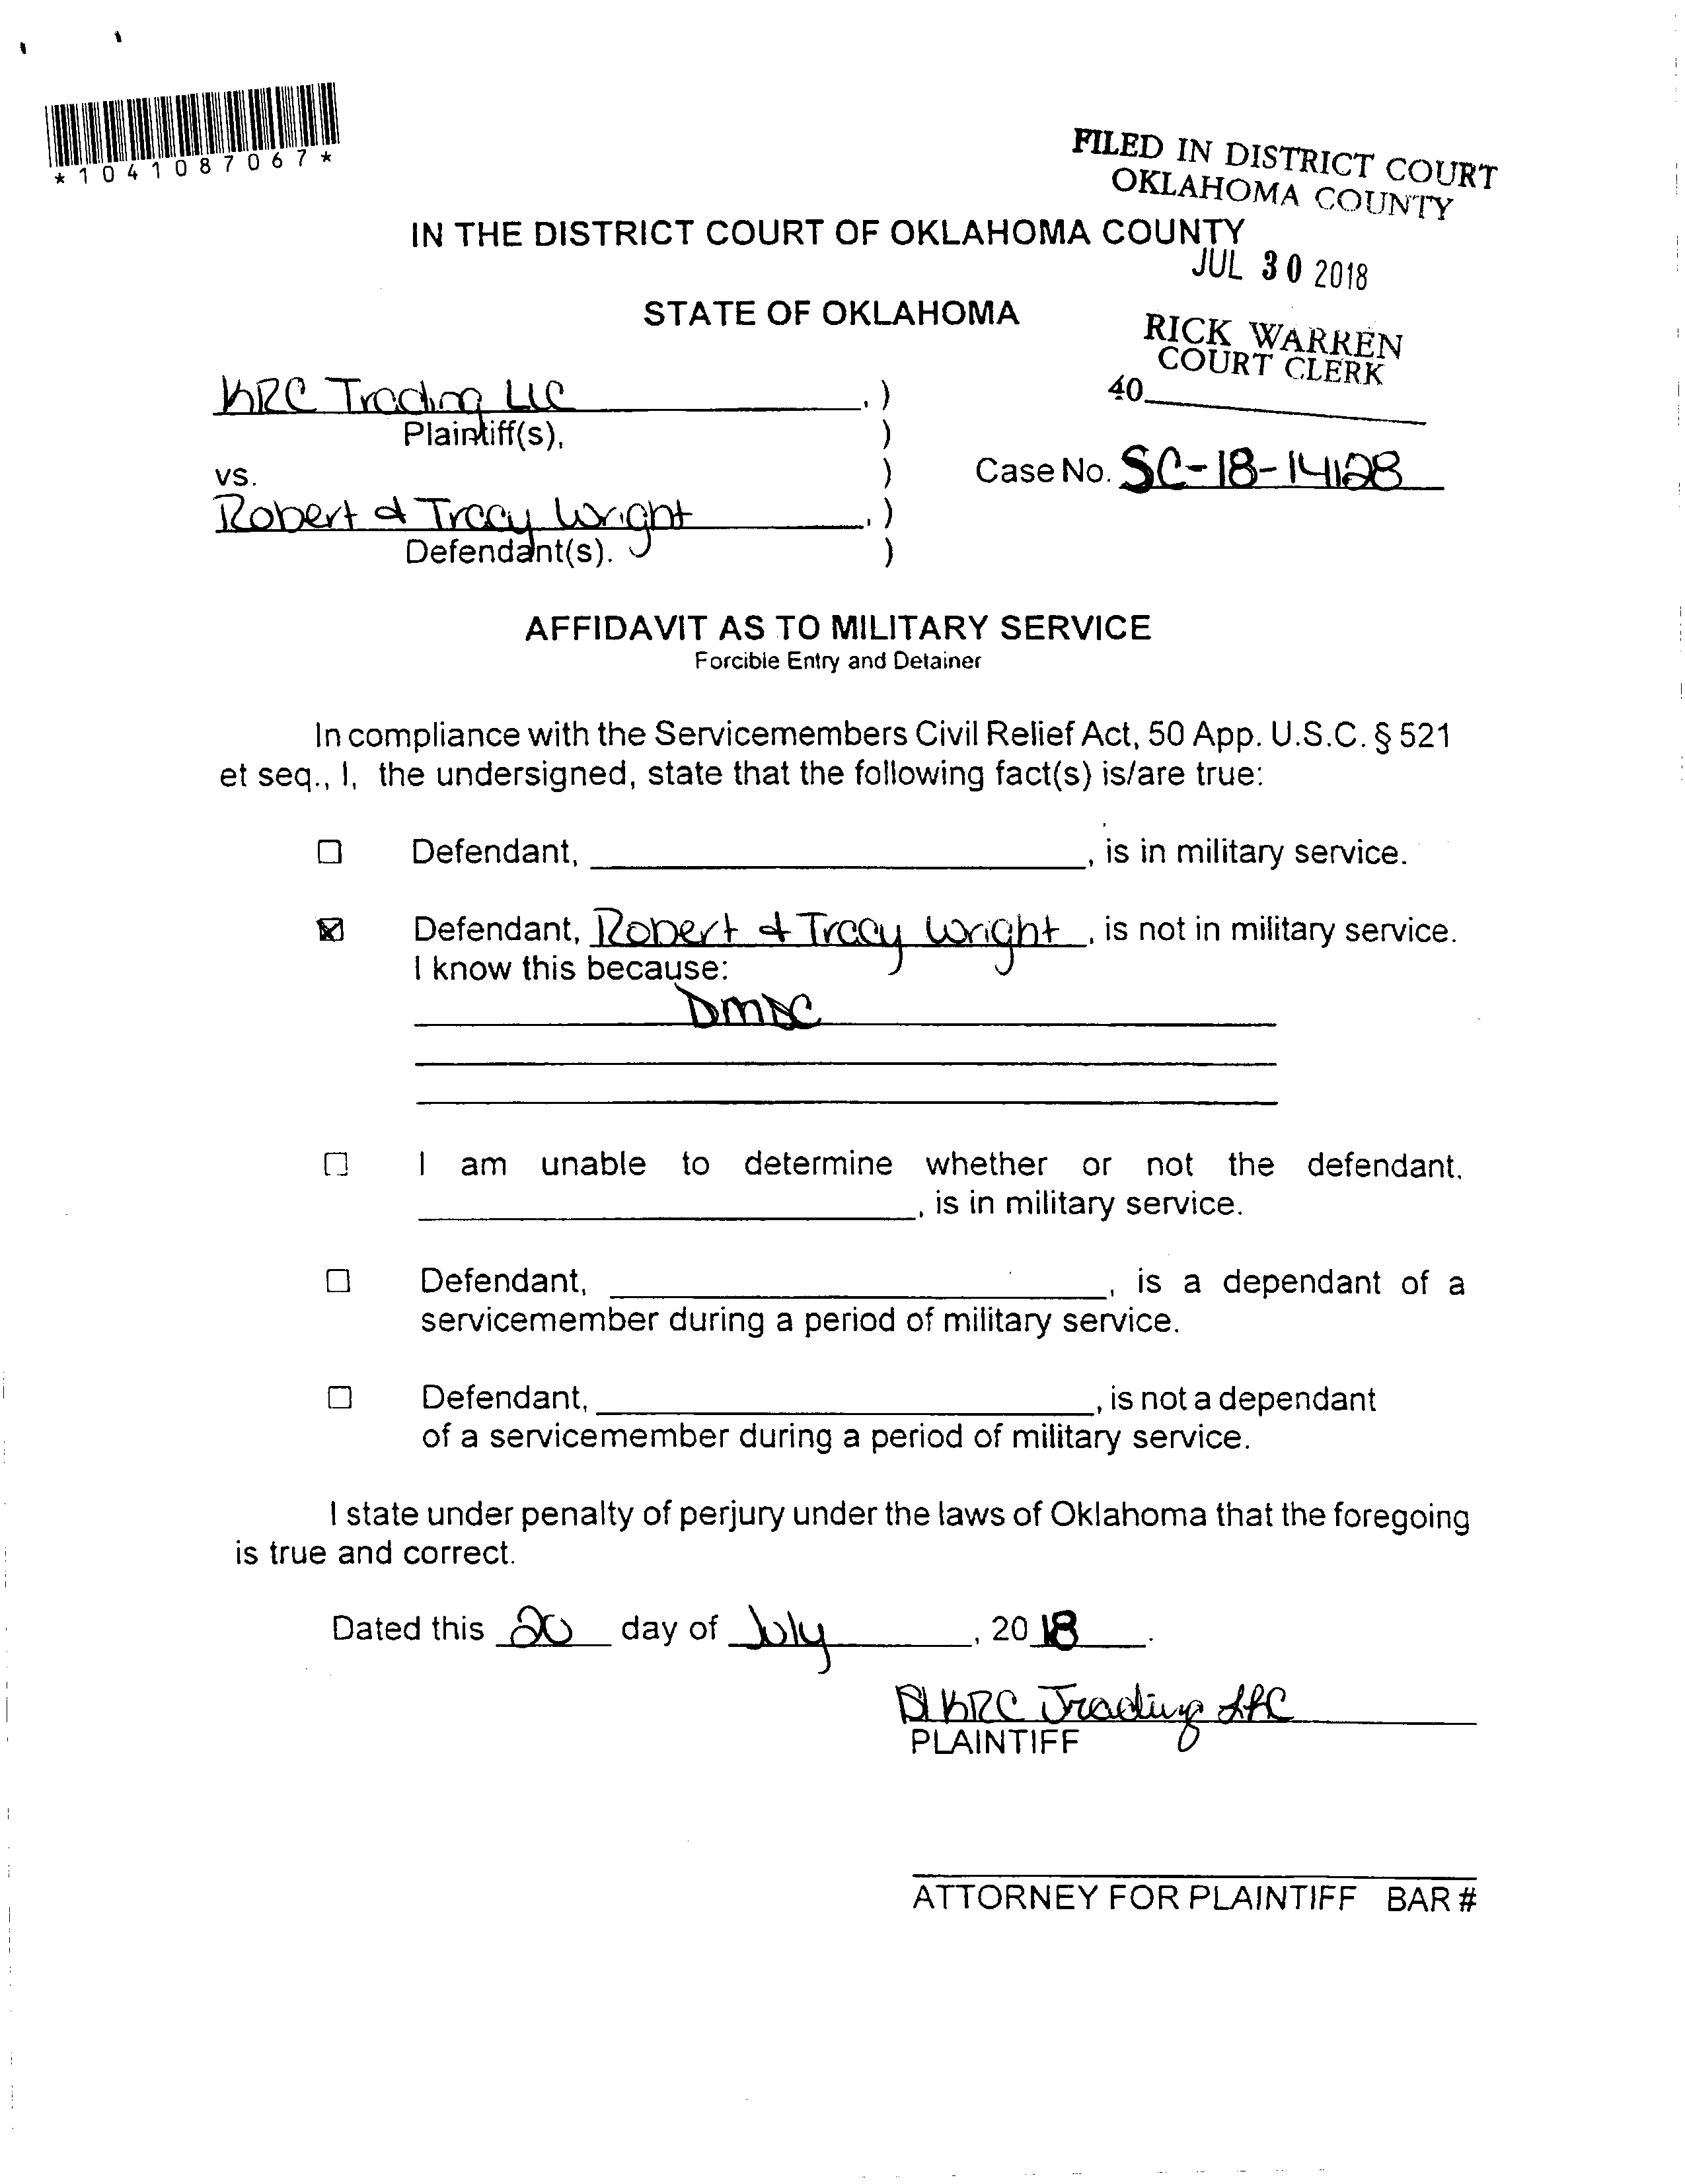 *1041087067*
FILED IN DISTRICT COURT
OKLAHOMA COUNTY
IN THE DISTRICT COURT OF OKLAHOMA COUNTY
JUL 30 2018
STATE OF OKLAHOMA
RICK WARREN
COURT CLERK
40
KRC Trading LLC , )
Plaintiff(s), )
vs. )
Case No. SC-18-14128
Robert & Tracy Wright , )
Defendant(s). )
AFFIDAVIT AS TO MILITARY SERVICE
Forcible Entry and Detainer
In compliance with the Servicemembers Civil Relief Act, 50 App. U.S.C. § 521
et seq., I, the undersigned, state that the following fact(s) is/are true:
☐ Defendant, ____, is in military service.
☒ Defendant, Robert & Tracy Wright, is not in military service.
I know this because:
DMDC
☐ I am unable to determine whether or not the defendant,
____, is in military service.
☐ Defendant, ____, is a dependant of a
servicemember during a period of military service.
☐ Defendant, ____, is not a dependant
of a servicemember during a period of military service.
I state under penalty of perjury under the laws of Oklahoma that the foregoing
is true and correct.
Dated this 20 day of July, 2018.
KRC Trading LLC
PLAINTIFF
ATTORNEY FOR PLAINTIFF BAR #